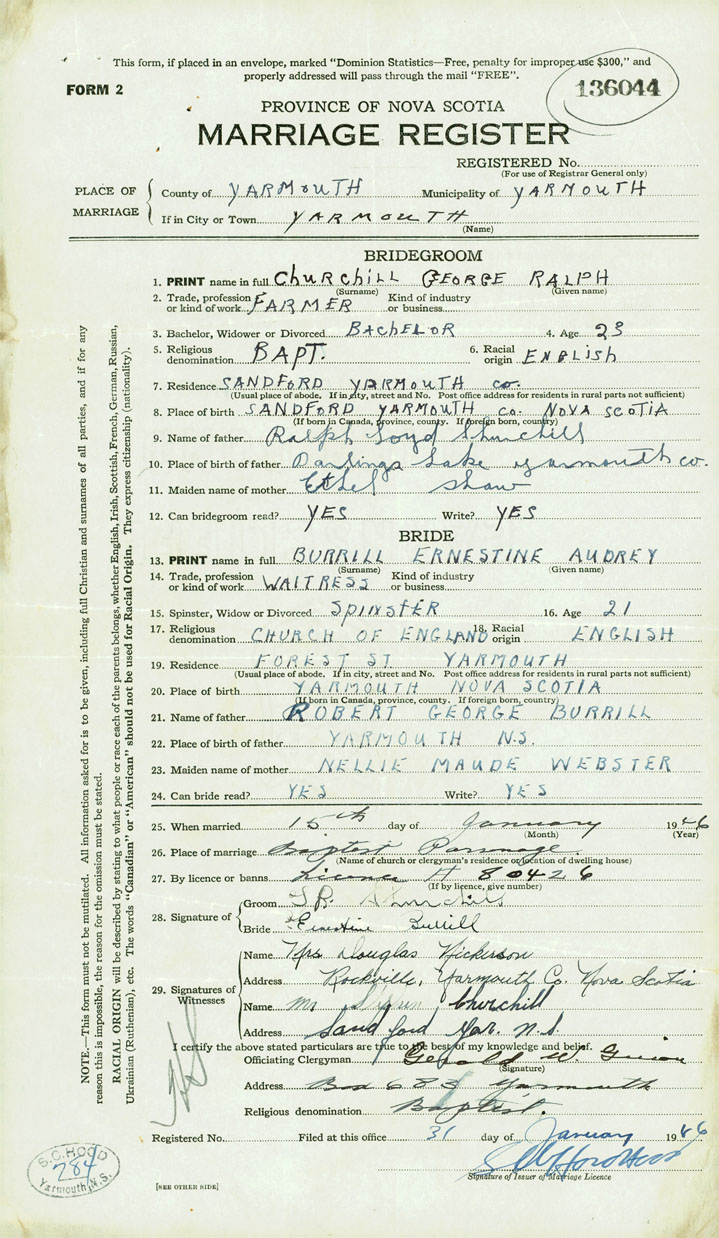 This form, if placed in an envelope, marked "Dominion Statistics—Free, penalty for improper use $300," and
properly addressed will pass through the mail "FREE".
FORM 2
136044
PROVINCE OF NOVA SCOTIA
MARRIAGE REGISTER
REGISTERED No.
(For use of Registrar General only)
PLACE OF MARRIAGE
County of YARMOUTH Municipality of YARMOUTH
If in City or Town YARMOUTH
(Name)
BRIDEGROOM
1. PRINT name in full CHURCHILL GEORGE RALPH
(Surname) (Given name)
2. Trade, profession or kind of work FARMER Kind of industry or business
3. Bachelor, Widower or Divorced BACHELOR 4. Age 23
5. Religious denomination BAPT. 6. Racial origin ENGLISH
7. Residence SANDFORD YARMOUTH CO.
(Usual place of abode. If in city, street and No. Post office address for residents in rural parts not sufficient)
8. Place of birth SANDFORD YARMOUTH CO. NOVA SCOTIA
(If born in Canada, province, county. If foreign born, country)
9. Name of father Ralph Loyd Churchill
10. Place of birth of father Darlings Lake Yarmouth co.
11. Maiden name of mother Ethel Shaw
12. Can bridegroom read? YES Write? YES
BRIDE
13. PRINT name in full BURRILL ERNESTINE AUDREY
(Surname) (Given name)
14. Trade, profession or kind of work WAITRESS Kind of industry or business
15. Spinster, Widow or Divorced SPINSTER 16. Age 21
17. Religious denomination CHURCH OF ENGLAND 18. Racial origin ENGLISH
19. Residence FOREST ST. YARMOUTH
(Usual place of abode. If in city, street and No. Post office address for residents in rural parts not sufficient)
20. Place of birth YARMOUTH NOVA SCOTIA
(If born in Canada, province, county. If foreign born, country)
21. Name of father ROBERT GEORGE BURRILL
22. Place of birth of father YARMOUTH N.S.
23. Maiden name of mother NELLIE MAUDE WEBSTER
24. Can bride read? YES Write? YES
25. When married 15th day of January 1946
(Month) (Year)
26. Place of marriage Baptist Parsonage
(Name of church or clergyman's residence or location of dwelling house)
27. By licence or banns Licence 80426
(If by licence, give number)
28. Signature of
Groom Churchill
Bride Ernestine Burrill
29. Signatures of Witnesses
Name Mrs Douglas Nickerson
Address Rockville, Yarmouth Co. Nova Scotia
Name Mr Churchill
Address Sandford Yar. N.S.
I certify the above stated particulars are true to the best of my knowledge and belief.
Officiating Clergyman Gerald W.
(Signature)
Address Box 683 Yarmouth
Religious denomination Baptist.
Registered No. Filed at this office 31 day of January 1946
Signature of Issuer of Marriage Licence
[SEE OTHER SIDE]
S.C. HOOD
284
Yarmouth, N.S.
NOTE.—This form must not be mutilated. All information asked for is to be given, including full Christian and surnames of all parties, and if for any
reason this is impossible, the reason for the omission must be stated.
RACIAL ORIGIN will be described by stating to what people or race each of the parents belongs, whether English, Irish, Scottish, French, German, Russian,
Ukrainian (Ruthenian), etc. The words "Canadian" or "American" should not be used for Racial Origin. They express citizenship (nationality).